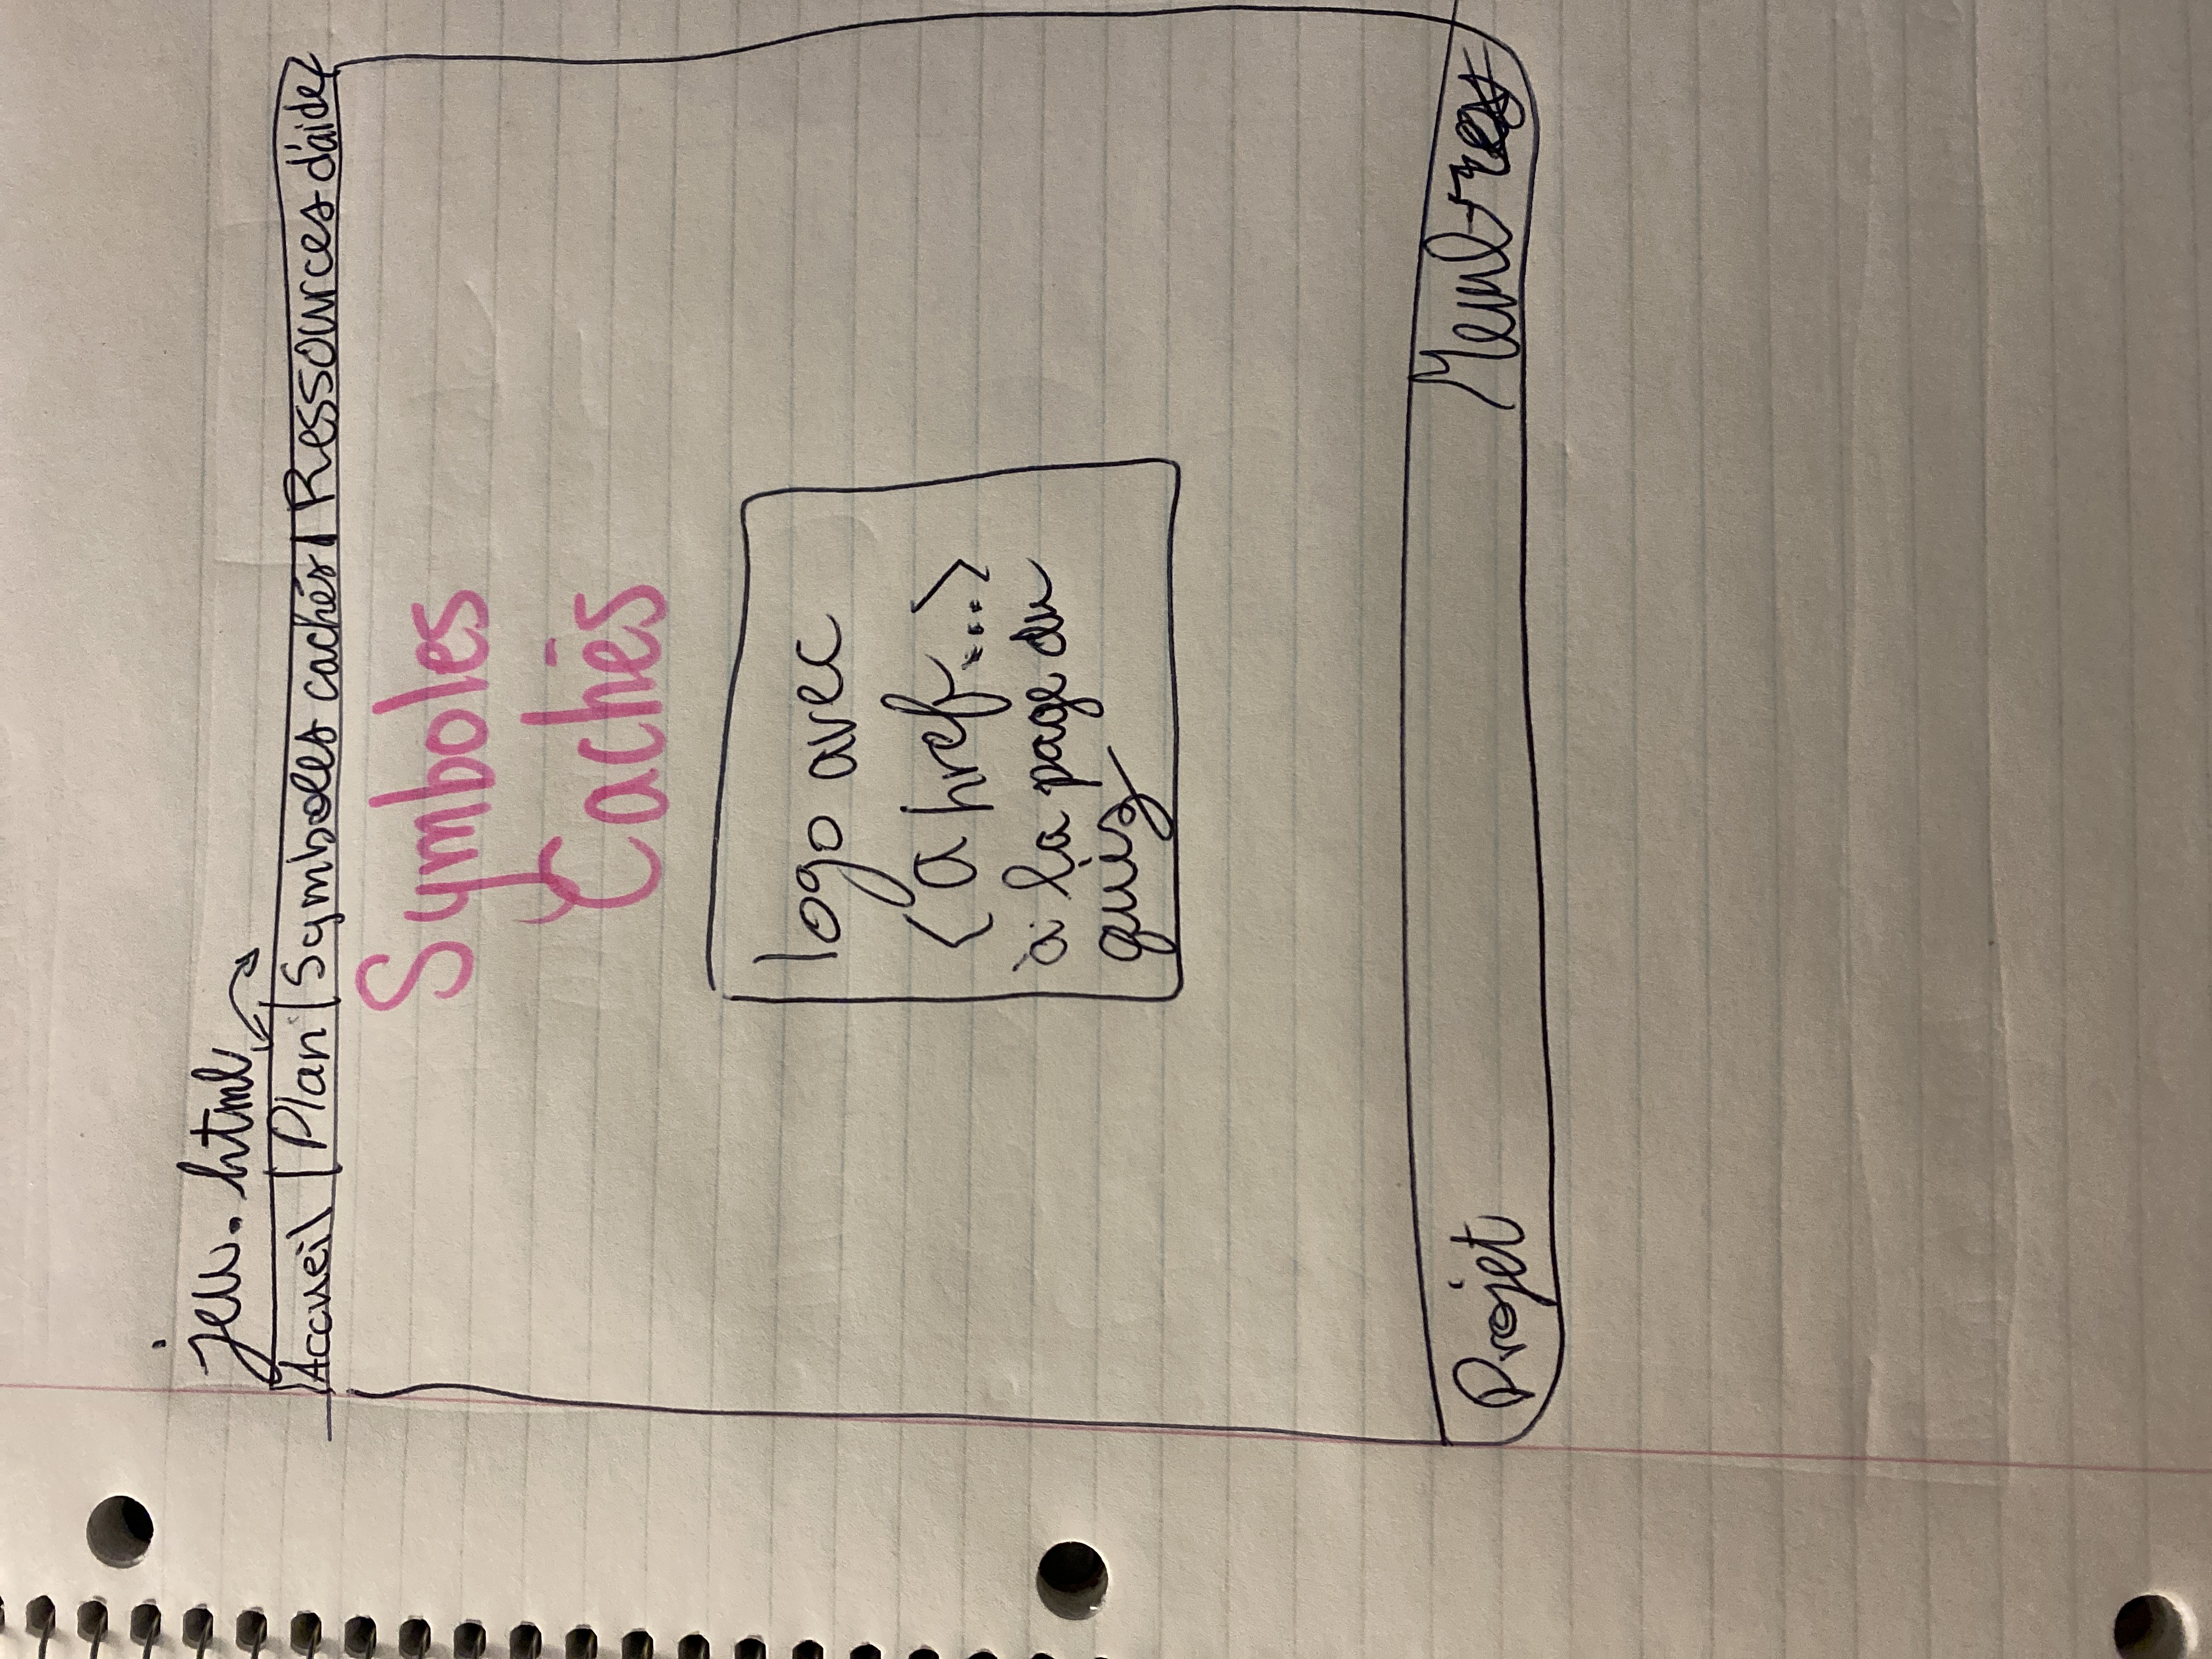 jeu.html
Accueil | Plan | Symboles cachés | Ressources d'aide
Symboles
Cachés
logo avec
<a href...>
à la page du
quiz
Projet Membres